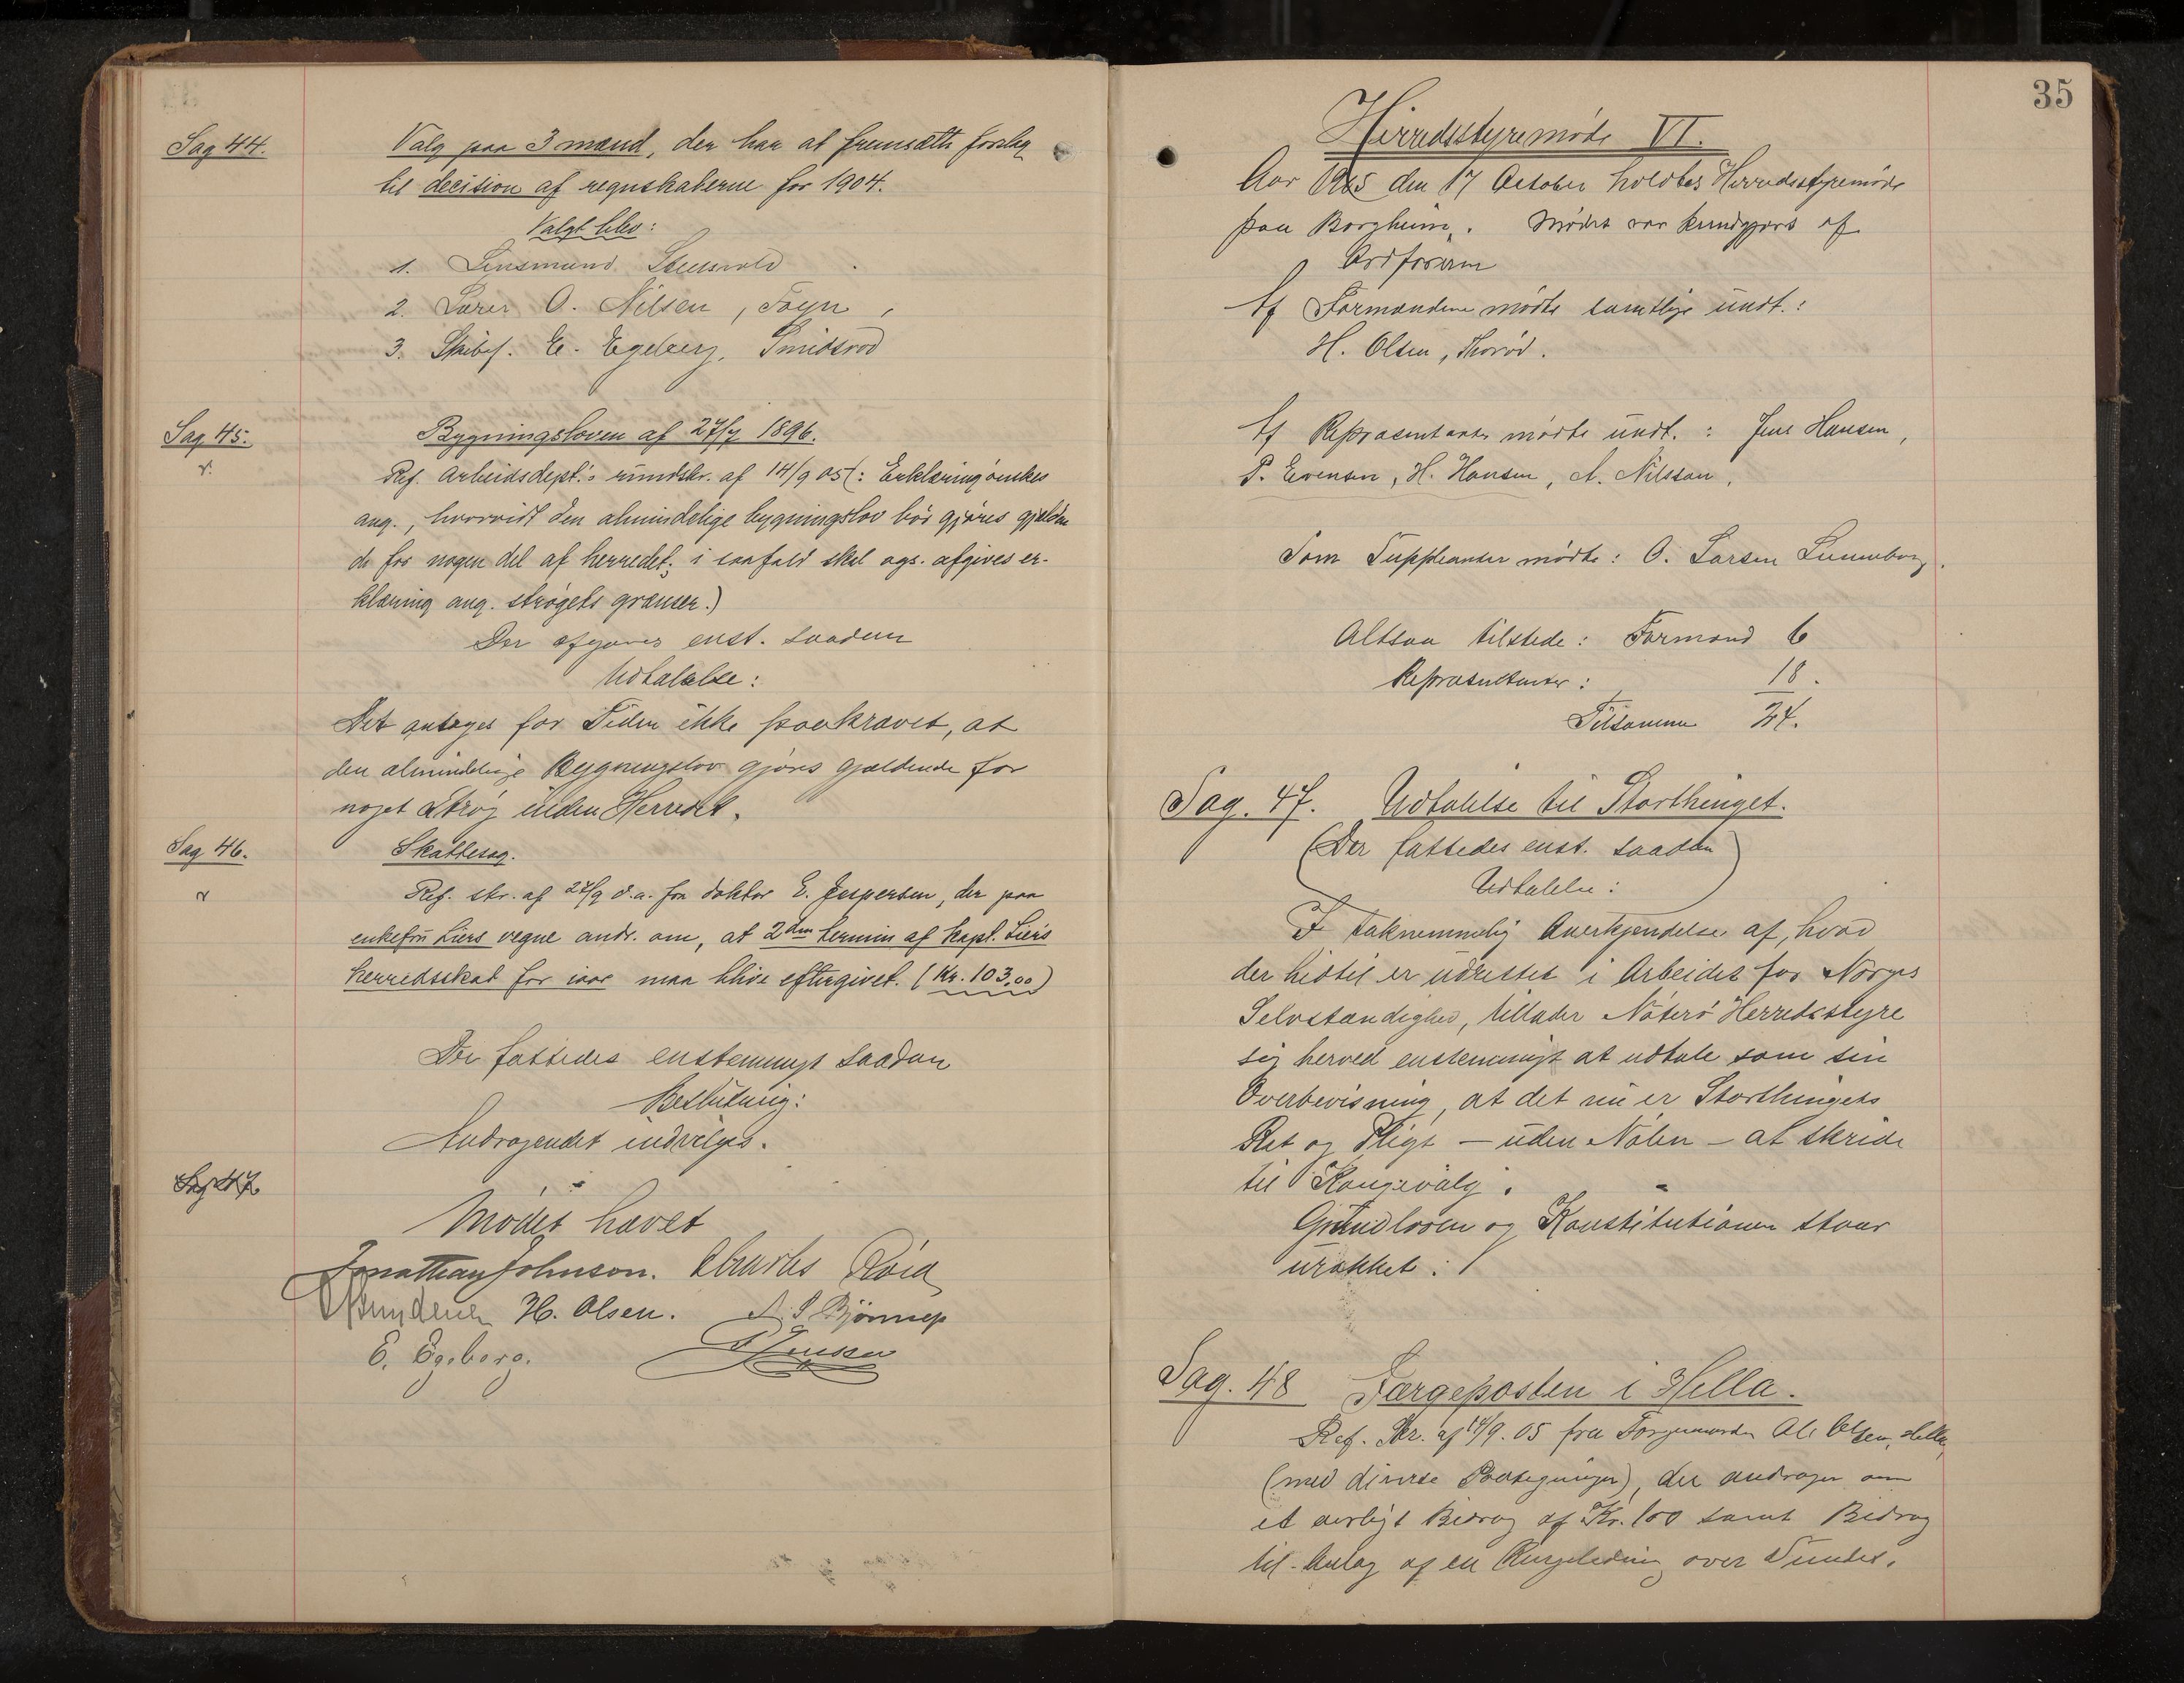 Sag 44.
Valg paa 3 mænd, der har at fremsætte forslag
til decision af regnskaberne for 1904.
Valgt blev:
1. Lensmand
2. Lærer O. Nilsen, Føyn,
3. Skibsf. E. Egeberg, Smidsrød
Sag 45.
v.
Bygningsloven af 27/7 1896.
Ref. Arbeidsdept.'s rundskr. af 14/9 05 (: Erklæring ønskes
ang., hvorvidt den almindelige bygningslov bør gjøres gjælden
de for nogen del af herredet; i saafald skal ogs. afgives er-
klæring ang. strøgets grænser.)
Der afgaves enst. saadan
Udtalelse:
Det antages for Tiden ikke paakrævet, at
den almindelige Bygningslov gjøres gjældende for
noget Strøg inden Herredet.
Sag 46.
v
Skattesag.
Ref. skr. af 27/9 d.a. fra doktor E. Jespersen, der paa
enkefru Liers vegne andr. om, at 2den termin af kapt. Lier's
herredsskat for iaar maa blive eftergivet. (Kr. 103,00)
Der fattedes enstemmigt saadan
Beslutning:
Andragendet indvilges.
Sag 47.
Mødet hævet
Jonathan Johnson. Charles Röed
H. Olsen. A. S. Bjönnep
E. Egeberg. Jenssen
35
Herredsstyremøde VI.
Aar 1905 den 17 October holdtes Herredsstyremøde
paa Borgheim. Mødet var kundgjort af
Ordføreren
Af Formændene mødte samtlige undt.:
H. Olsen, Thorød.
Af Repræsentanter mødte undt.: Jens Hansen,
P. Evensen, H. Hansen, A. Nilssøn.
Som Suppleanter mødte: O. Larsen Sunneborg.
Altsaa tilstede: Formænd 6
Repræsentanter: 18.
Tilsammen 24.
Sag. 47. Udtalelse til Storthinget.
(Der fattedes enst. saadan
Udtalelse:)
I taknemmelig Anerkjendelse af, hvad
der hidtil er udrettet i Arbeidet for Norges
Selvstændighed, tillader Nøterø Herredsstyre
sig herved enstemmigt at udtale som sin
Overbevisning, at det nu er Storthingets
Ret og Pligt – uden Nølen – at skride
til Kongevalg.
Grundloven og Konstitutionen staar
urokket.
Sag. 48 Færgeposten i Hella.
Ref. Skr. af 14/9. 05 fra Færgemanden Ole Olsen, Hella,
(med diverse Paategninger), der andrager om
et aarligt Bidrag af Kr. 100 samt Bidrag
til Anlæg af en Ringeledning over Sundet.